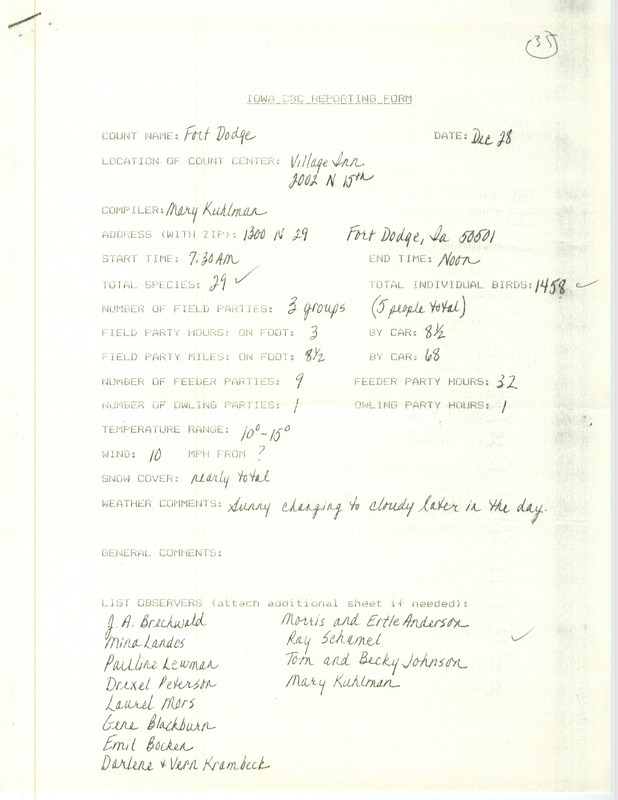 35
IOWA CBC REPORTING FORM
COUNT NAME: Fort Dodge DATE: Dec 28
LOCATION OF COUNT CENTER: Village Inn
2002 N 15th
COMPILER: Mary Kuhlman
ADDRESS (WITH ZIP): 1300 N 29 Fort Dodge, Ia 50501
START TIME: 7:30 AM END TIME: Noon
TOTAL SPECIES: 29 ✓ TOTAL INDIVIDUAL BIRDS: 1458 ✓
NUMBER OF FIELD PARTIES: 3 groups (5 people total)
FIELD PARTY HOURS: ON FOOT: 3 BY CAR: 8½
FIELD PARTY MILES: ON FOOT: 8½ BY CAR: 68
NUMBER OF FEEDER PARTIES: 9 FEEDER PARTY HOURS: 32
NUMBER OF OWLING PARTIES: 1 OWLING PARTY HOURS: 1
TEMPERATURE RANGE: 10°-15°
WIND: 10 MPH FROM ?
SNOW COVER: nearly total
WEATHER COMMENTS: Sunny changing to cloudy later in the day.
GENERAL COMMENTS:
LIST OBSERVERS (attach additional sheet if needed):
J. A. Brechwald Morris and Ertle Anderson
Mina Landes Ray Schamel ✓
Pauline Lewman Tom and Becky Johnson
Drexel Peterson Mary Kuhlman
Laurel Mors
Gene Blackburn
Emil Bocken
Darlene + Vern Krambeck